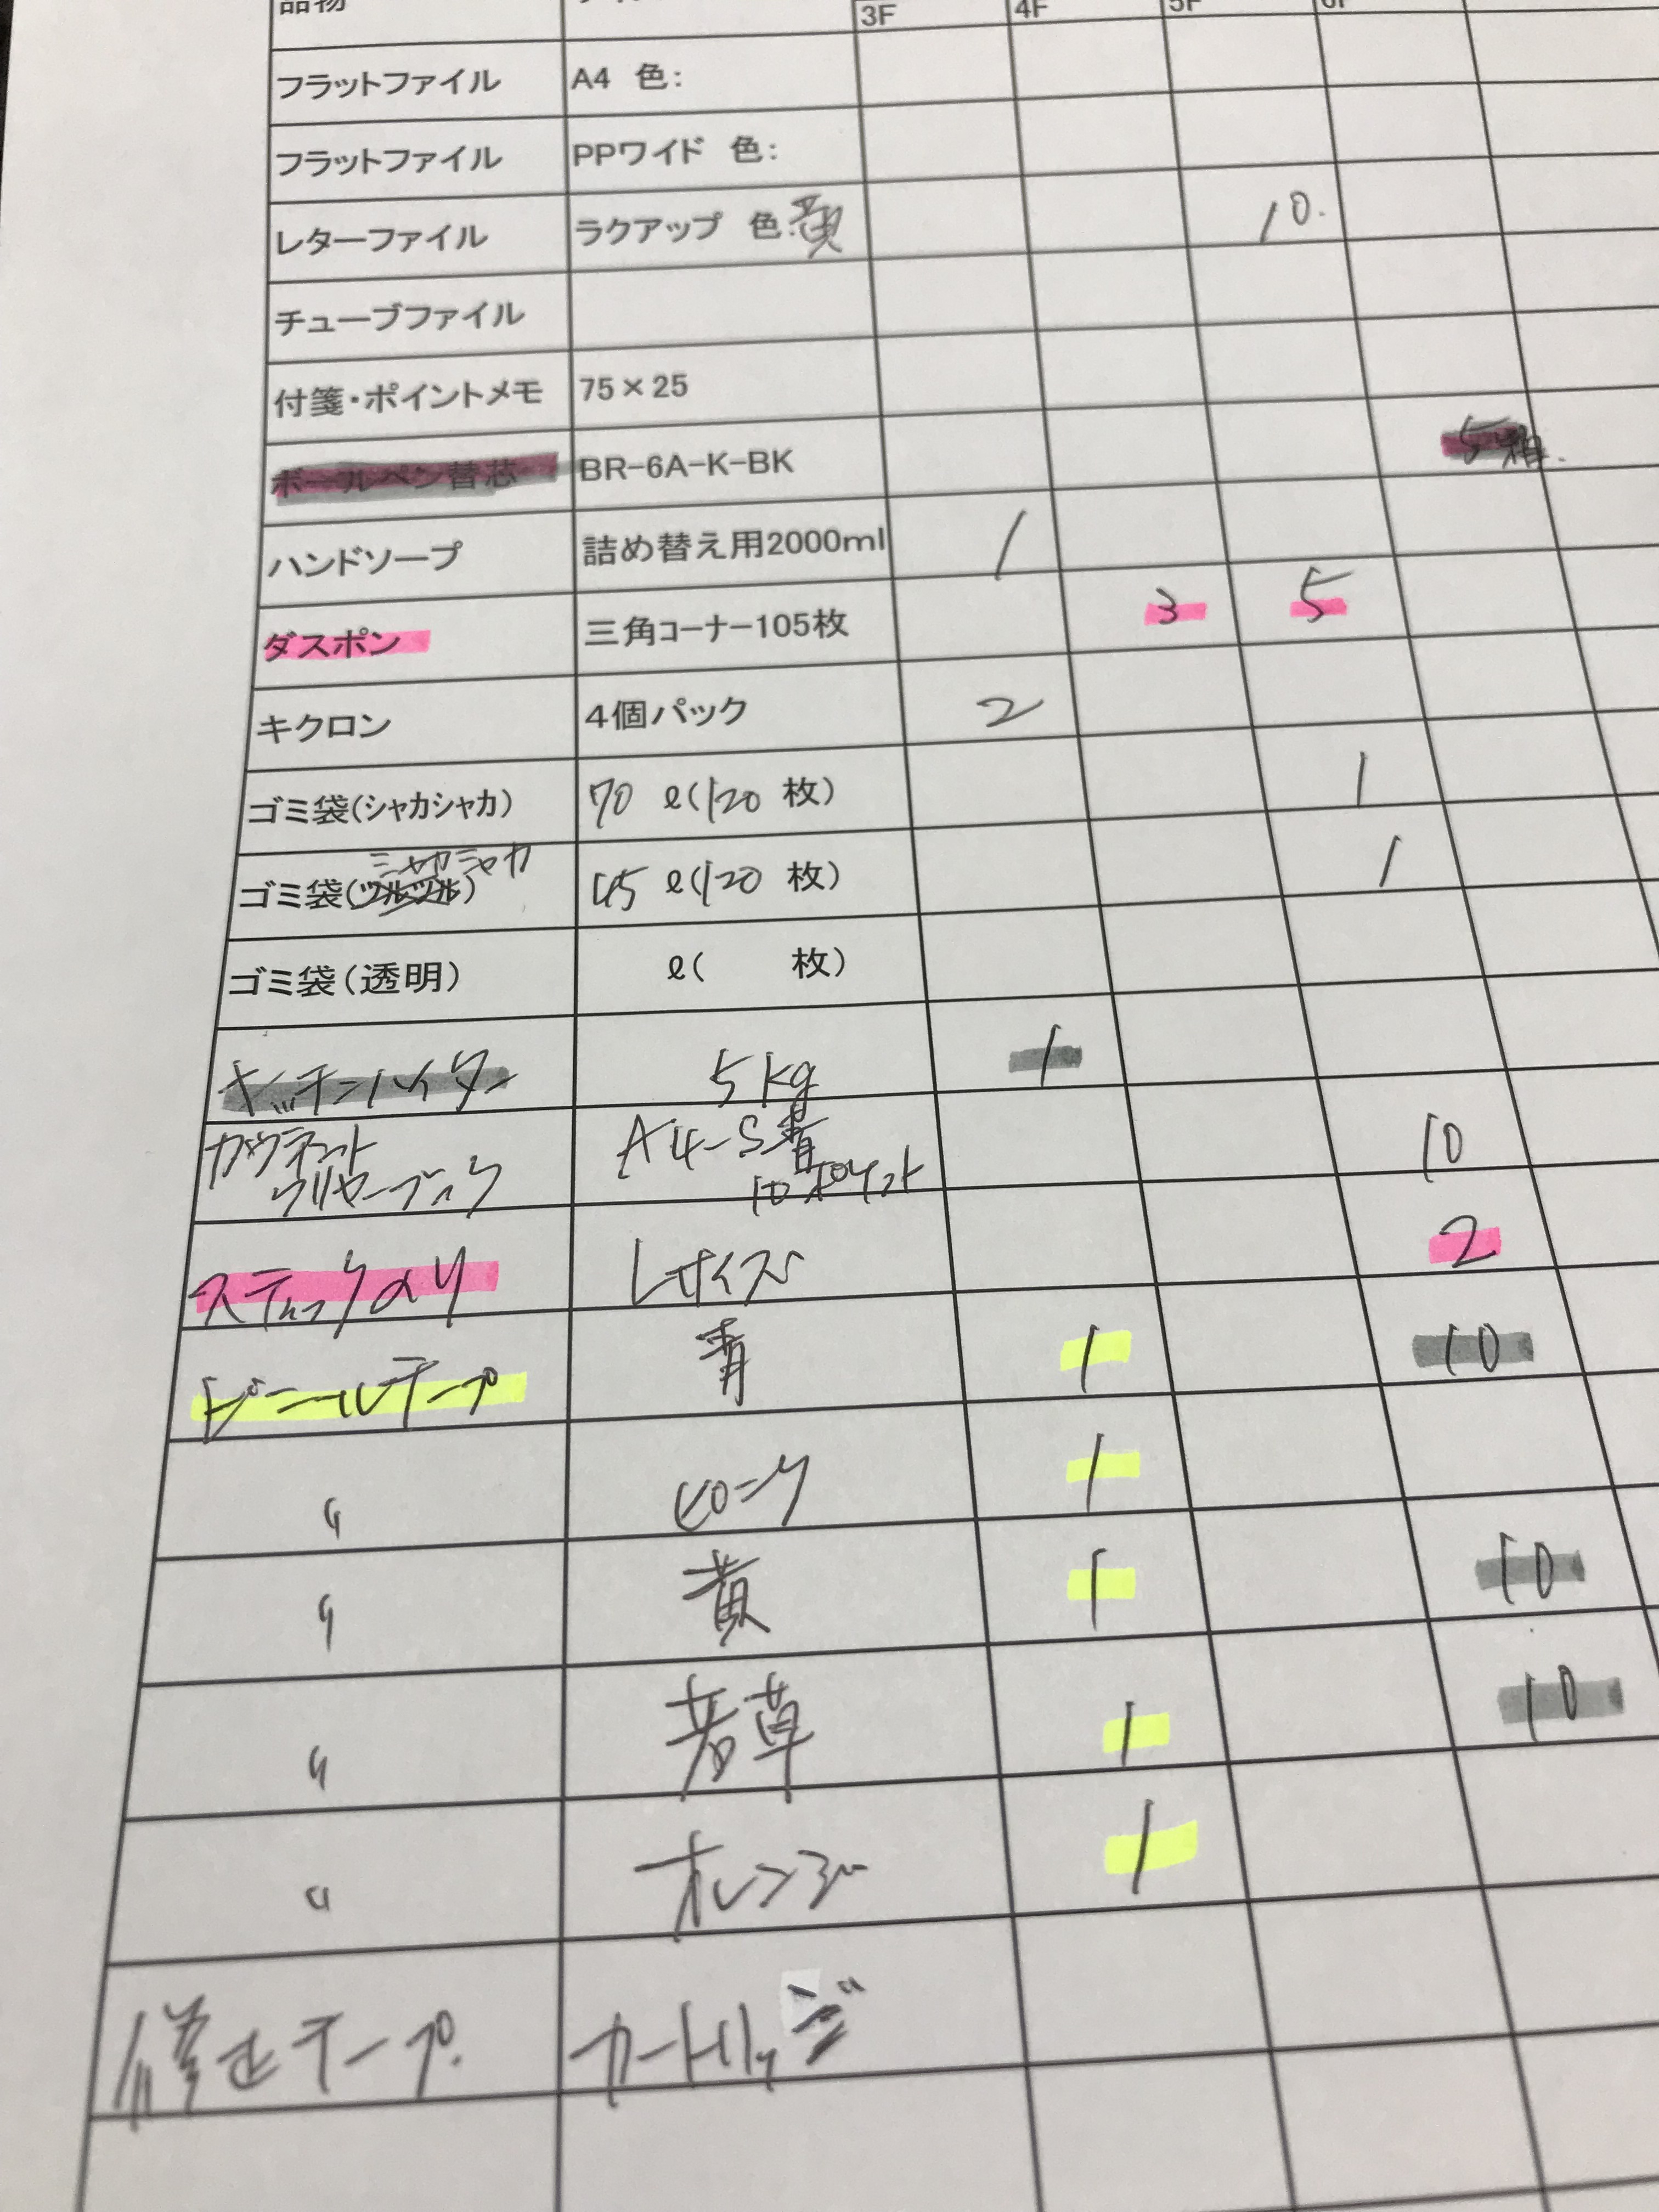 品物
3F 4F 5F 6F
フラットファイル A4 色:
フラットファイル PPワイド 色:
レターファイル ラクアップ 色:黄 10.
チューブファイル
付箋・ポイントメモ 75×25
ボールペン替芯 BR-6A-K-BK 5箱.
ハンドソープ 詰め替え用2000ml 1
ダスポン 三角コーナー105枚 3 5
キクロン 4個パック 2
ゴミ袋(シャカシャカ) 70 ℓ(120 枚) 1
シャカシャカ
ゴミ袋(ツルツル) 45 ℓ(120 枚) 1
ゴミ袋(透明) ℓ( 枚)
キッチンハイター 5kg 1
ガウネット A4-S青 10
クリヤーブック 10ポケット
スティックのり Lサイズ 2
ビニールテープ 青 1 10
〃 ピンク 1
〃 黄 1 10
〃 若草 1 10
〃 オレンジ 1
修正テープ. カートリッジ